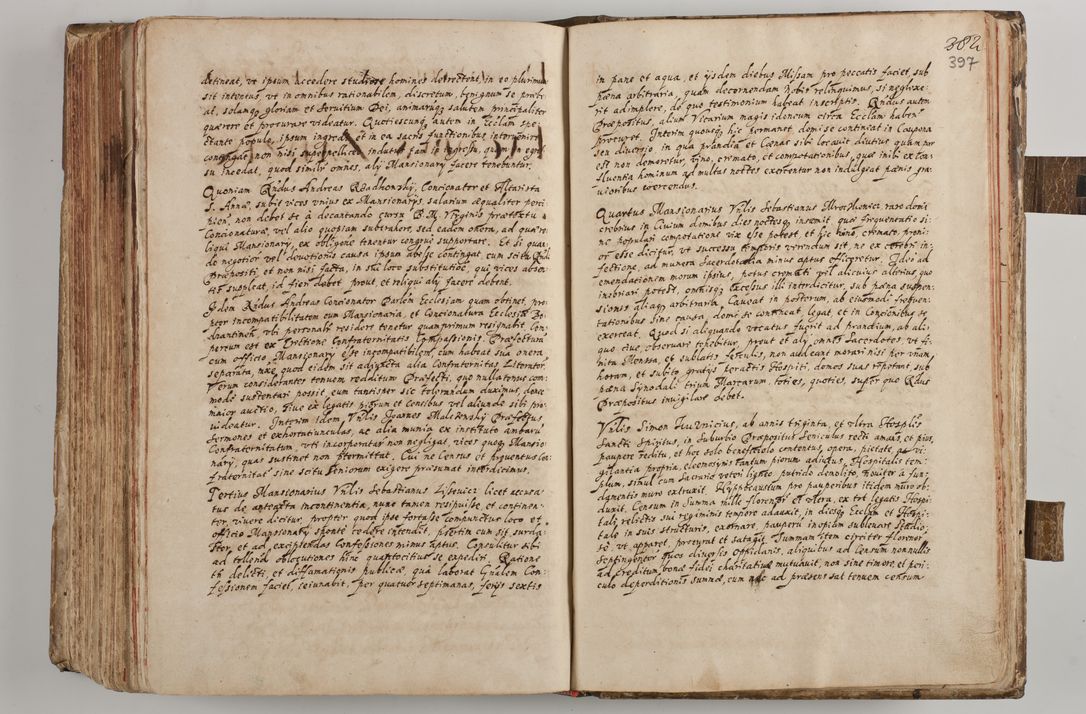 detineat, vt ipsum accedere studiose homines detrectent, in eo plurimum
sit intentus, vt in omnibus rationabilem, discretum, benignum se præbe-
at, solamq; gloriam et seruitium Dei, animarumq; salutem principaliter
quærere et procurare videatur. Quotiescunq; autem in Ecclām spe-
ctante populo, ipsum ingredi et in ea sacris functionibus interuenire
contingat, non nisi superpelliceo indutus tam in ingressu, quam in egres
su incedat, quod simlr omnes, alij Mansionarij facere tenebuntur.
Quoniam Rndus Andreas Radhonskij, Concionator et Altarista
S. Annæ, subit vices vnius ex Mansionarijs, salarium æqualiter perci-
pien, non debet se à decantando cursu B. M. Virginis prætextu
Concionaturæ, vel alio quopiam subtrahere, sed eadem onera, ad quæ re
liqui Mansionarij, ex obligone tenentur congruè supportare. Et si quan
do negotior vel deuotionis causa ipsum abesse contingat cum scitu Rndi
Præpositi, et non nisi facta, in sui loco substitutioē, qui vices absen
tis suppleat, id fieri debet prout, et reliqui alij facere debent.
Idem Rndus Andreas Concionator Parōlem Ecclesiam quam obtinet, pro
pter incompatibilitatem cum Mansionaria, et Concionatura Ecclesiæ Bo
vbi personalr residere tenetur quamprimum resignabit. Com
pertum est ex Erectione Confraternitatis Compassionis Præfecturam
cum officio Mansionarij esse incompatibilem, cum habeat sua onera
separata, nāe quod eidem sit adiuncta alia Confraternitas Literator
Verum considerantes tenuem redditum Præfecti, quo nullatenus com-
modè sustentari possit, eum tantisper sic tolerandum duximus, donec
maior auctio, siue ex legatis piorum et Censibus vel aliunde sibi pro-
uideatur. Interim idem Vnlis Joannes Præfectus
Sermones et exhortatiunculas, ac alia munia ex instituto ambarum
Confraternitatum, vti incorporatar non negligat, vices quoq; Mansio-
narij, quas sustinet non prætermittat. Cui ne Census et prouentus Con
fraternitat sine scitu seniorum exigere præsumat interdicimus.
Tertius Mansionarius Vnlis Sebastianus Lisowicz licet accusa-
tus de anteacta incontinentia, nunc tamen resipuisse, et continen-
ter viuere dicitur, propter quod ipse fortasse compunctus loco et
officio Mansionarij sponte cedere intendit, præsertim cum sit surda-
ster, et ad excipiendas Confessiones minus aptus. Consulitur sibi
ad tollendas oblocutiones hinc quantocitius se expedire. Ratione
tñ delicti, et diffamationis publicæ, quâ laborat Gnālem Con-
fessionem faciet, ieiunabit, per quatuor septimanas, ferijs sextis
382
397
in pane et aqua, et ijsdem diebus Missam pro peccatis faciet, sub
pœna arbitraria, quam decernendam nobis relinquimus, si neglexe-
rit adimplere, de quo testimonium habeat inscriptis. Rndus autem
Præpositus, alium Vicarium magis idoneum circa Ecclām haben
procuret. Interim quousq; hic permanet domi se contineat in Caupona
seu diuersorio, in qua prandia et Cœnas sibi locauit diutius quam par
est non demoretur, vino, cremato, et compotationibus, quæ inibi ex con-
fluentia hominum ad multas noctes exercentur non indulgeat pœnis gra
uioribus coercendus.
Quartus Mansionarius Vnlis Sebastianus Mrothonicz raro domi
crebrius in Ciuium domibus dies noctesq; insumit, quæ frequentatio si-
ne populari compotatione vix esse potest, et hic vino, cremato proni-
or esse dicitur, vt successu temporis verendum sit, ne ex cerebri in-
fectione, ad munera sacerdotalia minus aptus efficeretur. Ideo ad
emendationem morum ipsius, potus cremati vel alicuius alterius quo
inebriari potest, omnisq; excessus illi interdicitur, sub pœna suspen-
sionis aliaq; arbitraria. Caueat in posterum, ab eiusmodi frequen-
tationibus sine causa, domi se contineat, legat, et in Concionibus se
exerceat. Quod si aliquando vocatus fuerit ad prandium, ab ali-
quo ciue, obseruare tenebitur, prout et alij omnes Sacerdotes, vt fi-
nita Mensa, et sublatis ferculis, non audeant morari nisi per vnam,
horam, et subito gratijs peractis Hospiti, domos suas repetant, sub
pœna Synodali trium Marcarum, toties, quoties super quo Rdus
Præpositus inuigilare debet.
Vnlis Simon Hawnicius, ab annis triginta, et vltra Hosplis
Sancti Spiritus, in Suburbio Præpositus Seniculus recti amans, et pius,
paupere redditu, et hoc solo beneficiolo contentus, opera, pietate, ac vi-
gilantia propria, eleemosynis tantum piorum adiutus, Hospitalis tem-
plum, simul cum Sacrario veteri ligneo putrido demolito, nouiter à fun-
damentis muro extruxit. Hypocaustum pro pauperibus itidem muro ob-
duxit. Censum in Summa mille florenor et vltra, ex tot legatis Hospi-
talj relictis sui regiminis tempore adauxit, in diesq; Ecclām et Hospi-
tale in suis structuris, exornare, pauperū inopiam subleuare studio-
sè, vt apparet, procurat et satagit. Summam item circiter florenor
Septingentor quos diuersis Oppidanis, aliquibus ad Censum nonnullis
ad Creditum bonæ fidei charitatiuæ mutuauit, non sine timore, et peri-
culo deperditionis summæ, eum nāe ad præsens sat tenuem censum